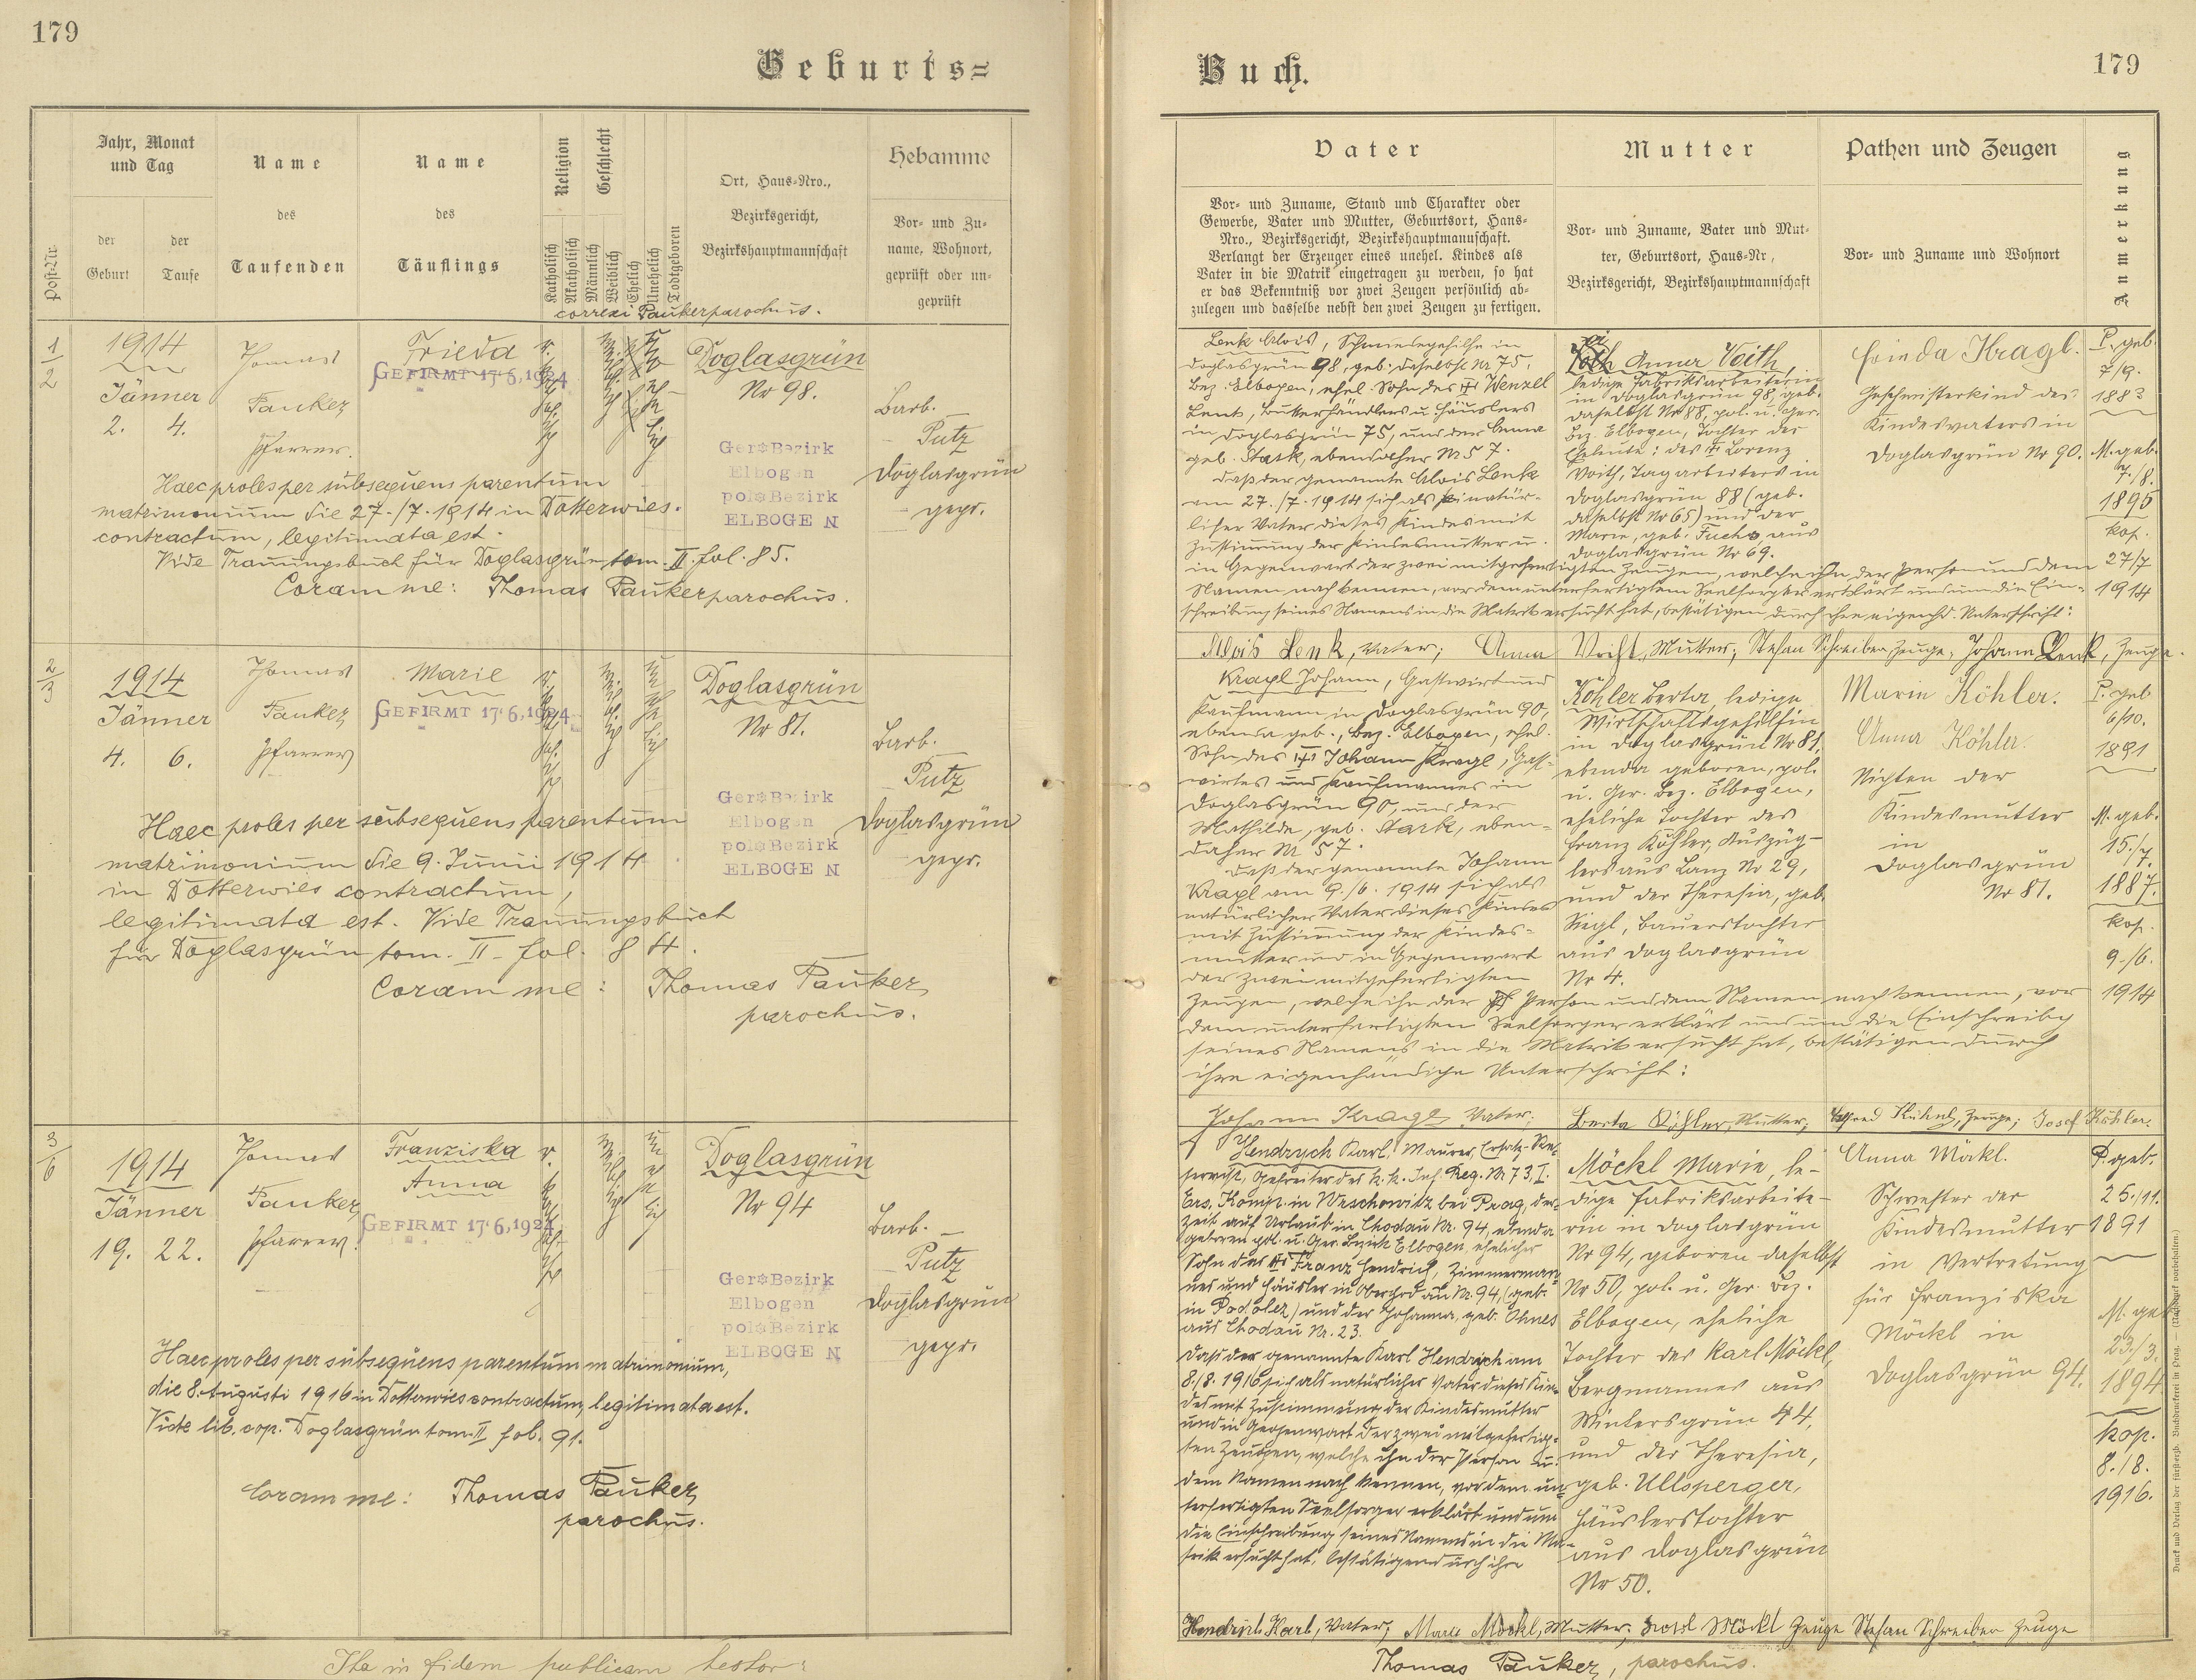 179
Geburts=
Jahr, Monat
und Tag
der
Geburt
der
Taufe
Post-Nr.
Name
des
Taufenden
Name
des
Täuflings
Religion
Katholisch
Akatholisch
Geschlecht
Männlich
Weiblich
Ehelich
Unehelich
Todtgeboren
Ort, Haus-Nro.,
Bezirksgericht,
Bezirkshauptmannschaft
Hebamme
Vor- und Zu-
name, Wohnort,
geprüft oder un-
geprüft
correxi Pauker parochus.
1/2
1914
Jänner
2. 4.
Thomas
Pauker
Pfarrer.
Frieda
GEFIRMT 17·6,1924
Doglasgrün
Nr 98.
Ger Bezirk
Elbogen
pol Bezirk
ELBOGEN
Barb.
Putz
Doglasgrün
gepr.
Haec proles per subsequens parentum
matrimonium die 27./7. 1914 in Dotterwies.
contractum, legitimata est.
Vide Trauungsbuch für Doglasgrün tom. II. fol. 85.
Coram me: Thomas Pauker parochus.
2/3
1914
Jänner
4. 6.
Thomas
Pauker
Pfarrer
Marie
GEFIRMT 17·6,1924
Doglasgrün
Nr 81.
Ger Bezirk
Elbogen
pol Bezirk
ELBOGEN
Barb.
Putz
Doglasgrün
gepr.
Haec proles per subsequens parentum
matrimonium die 9. Junii 1914
in Dotterwies contractum,
legitimata est. Vide Trauungsbuch
für Doglasgrün tom. II fol. 84.
Coram me: Thomas Pauker
parochus.
3/6
1914
Jänner
19. 22.
Thomas
Pauker
Pfarrer.
Franziska
Anna
GEFIRMT 17·6,1924
Doglasgrün
Nr 94
Ger Bezirk
Elbogen
pol Bezirk
ELBOGEN
Barb.
Putz
Doglasgrün
gepr.
Haec proles per subsequens parentum matrimonium,
die 8. Augusti 1916 in Dotterwies contractum, legitimata est.
Vide lib. cop. Doglasgrün tom. II fol. 91.
Coram me: Thomas Pauker
parochus.
Ita in fidem publicam testor:
Buch.
179
Vater
Vor- und Zuname, Stand und Charakter oder
Gewerbe, Vater und Mutter, Geburtsort, Haus-
Nro., Bezirksgericht, Bezirkshauptmannschaft.
Verlangt der Erzeuger eines unehel. Kindes als
Vater in die Matrik eingetragen zu werden, so hat
er das Bekenntniß vor zwei Zeugen persönlich ab-
zulegen und dasselbe nebst den zwei Zeugen zu fertigen.
Mutter
Vor- und Zuname, Vater und Mut-
ter, Geburtsort, Haus-Nr,
Bezirksgericht, Bezirkshauptmannschaft
Pathen und Zeugen
Vor- und Zuname und Wohnort
Anmerkung
Lenk Alois, Schmiedegehilfe in
Doglasgrün 98, geb. daselbst Nr 75,
Bez. Elbogen, ehel. Sohn des Wenzel
Lenk, Butterhändlers u. Häuslers
in Doglasgrün 75, und der Anna
geb. Stark, ebendaher Nr 57.
Daß der genannte Alois Lenk
am 27./7. 1914 sich als natür-
licher Vater dieses Kindes mit
Zustimmung der Kindesmutter u.
in Gegenwart der zwei mitgefertigten Zeugen, welche ihn der Person und dem
Namen nach kennen, vor dem unterfertigtem Seelsorger erklärt und um die Ein-
schreibung seines Namens in die Matrik ersucht hat, bestätigen durch ihre eigenhd. Unterschrift:
Anna Voith,
ledige Fabriksarbeiterin
in Doglasgrün 98, geb.
daselbst Nr 88, pol. u. Ger.
Bez. Elbogen, Tochter der
Eheleute: des Lorenz
Voith, Tagarbeiters in
Doglasgrün 88 (geb.
daselbst Nr 65) und der
Marie, geb. Fuchs, aus
Doglasgrün Nr 69.
Frieda Kragl.
Geschwisterkind des
Kindesvaters in
Doglasgrün Nr 90.
P. geb.
7/9.
1883
M. geb.
7./8.
1895
kop.
27/7
1914
Alois Lenk, Vater; Anna Voith, Mutter; Stefan Schreiber Zeuge, Johann Lenk, Zeuge.
Kragl Johann, Gastwirt und
Kaufmann in Doglasgrün 90,
ebenda geb., Bez. Elbogen, ehel.
Sohn des Johann Kragl, Gast-
wirtes und Kaufmannes in
Doglasgrün 90, und der
Mathilde, geb. Stark, eben-
daher Nr 57.
Daß der genannte Johann
Kragl am 9./6. 1914 sich als
natürlicher Vater dieses Kindes
mit Zustimmung der Kindes-
mutter und in Gegenwart
der zwei mitgefertigten
Zeugen, welche ihn der Person und dem Namen nach kennen, vor
dem unterfertigten Seelsorger erklärt und um die Einschreibg
seines Namens in die Matrik ersucht hat, bestätigen durch
ihre eigenhändige Unterschrift:
Köhler Berta, ledige
Wirtschaftsgehilfin
in Doglasgrün Nr 81,
ebenda geboren, pol.
u. Ger. Bez. Elbogen,
eheliche Tochter des
Franz Köhler, Auszüg-
lers aus Lanz Nr 29,
und der Theresia, geb.
Siegl, Bauerstochter
aus Doglasgrün
Nr 4.
Marie Köhler.
Anna Köhler.
Nichten der
Kindesmutter
in
Doglasgrün
Nr 81.
P. geb
6/10.
1891
M. geb.
15./7.
1887.
kop.
9./6.
1914
Johann Kragl Vater; Berta Köhler, Mutter; Zeuge; Josef Köhler.
Hendrych Karl, Maurer, Ersatz-Re-
servist, Gefreiter des k. k. Inf. Reg. Nr 73, I.
Ers. Komp. in Wrschowitz bei Prag, der-
zeit auf Urlaub in Chodau Nr. 94, ebenda
geboren pol. u. Ger. Bezirk Elbogen, ehelicher
Sohn des Franz Hendrich, Zimmerman-
nes und Häusler in Oberchodau Nr. 94, (geb.
in Podolez) und der Johanna, geb. Ohnes
aus Chodau Nr. 23.
Daß der genannte Karl Hendrych am
8./8. 1916 sich als natürlicher Vater dieses Kin-
des mit Zustimmung der Kindesmutter
und in Gegenwart der zwei mitgefertig-
ten Zeugen, welche ihn der Person u.
dem Namen nach kennen, vor dem un-
terfertigten Seelsorger erklärt und um
die Einschreibung seines Namens in die Ma-
trik ersucht hat, bestätigen durch ihre
Möckl Marie, le-
dige Fabriksarbeite-
rin in Doglasgrün
Nr 94, geboren daselbst
Nr 50, pol. u. Ger. Bez.
Elbogen, eheliche
Tochter des Karl Möckl,
Bergmannes aus
Wintersgrün 44,
und der Theresia,
geb. Ullsperger,
Häuslerstochter
aus Doglasgrün
Nr 50.
Anna Möckl.
Schwester der
Kindesmutter
in Vertretung
für Franziska
Möckl in
Doglasgrün 94.
P. geb.
25./11.
1891
M. geb
23./3.
1894
kop.
8./8.
1916.
Karl, Vater; Marie Möckl, Mutter; Möckl Zeuge Stefan Schreiber Zeuge
Thomas Pauker, parochus.
Druck und Verlag der fürsterzb. Buchdruckerei in Prag. — (Nachdruck vorbehalten.)